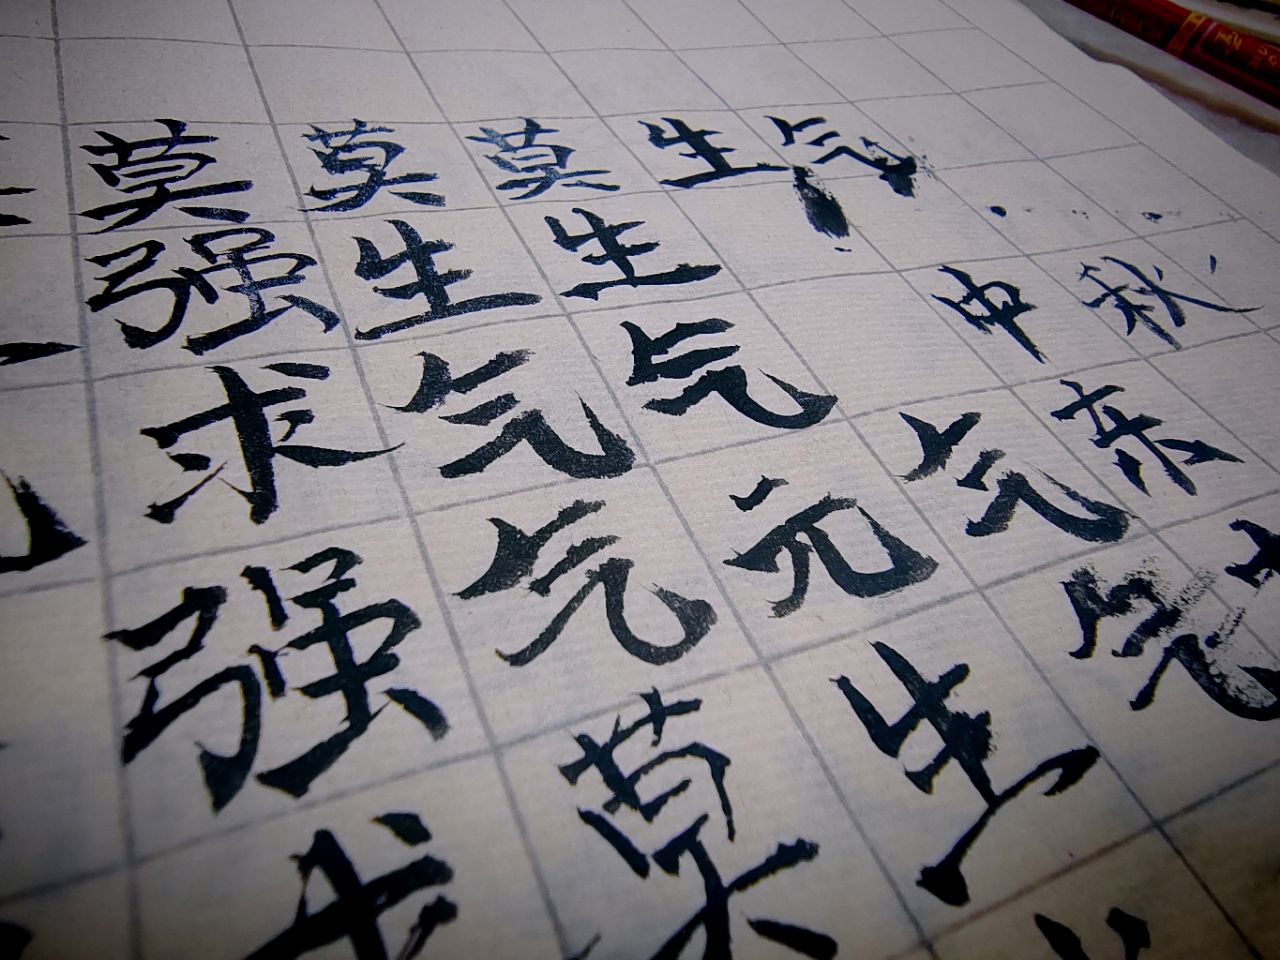 莫莫莫生气
强生生
中秋
求气气
气亲
强气元
生气
莫
求